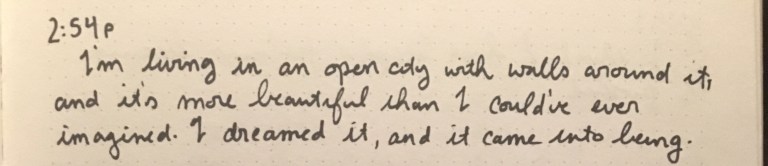 2:54p
I'm living in an open city with walls around it,
and it's more beautiful than I could've ever
imagined. I dreamed it, and it came into being.